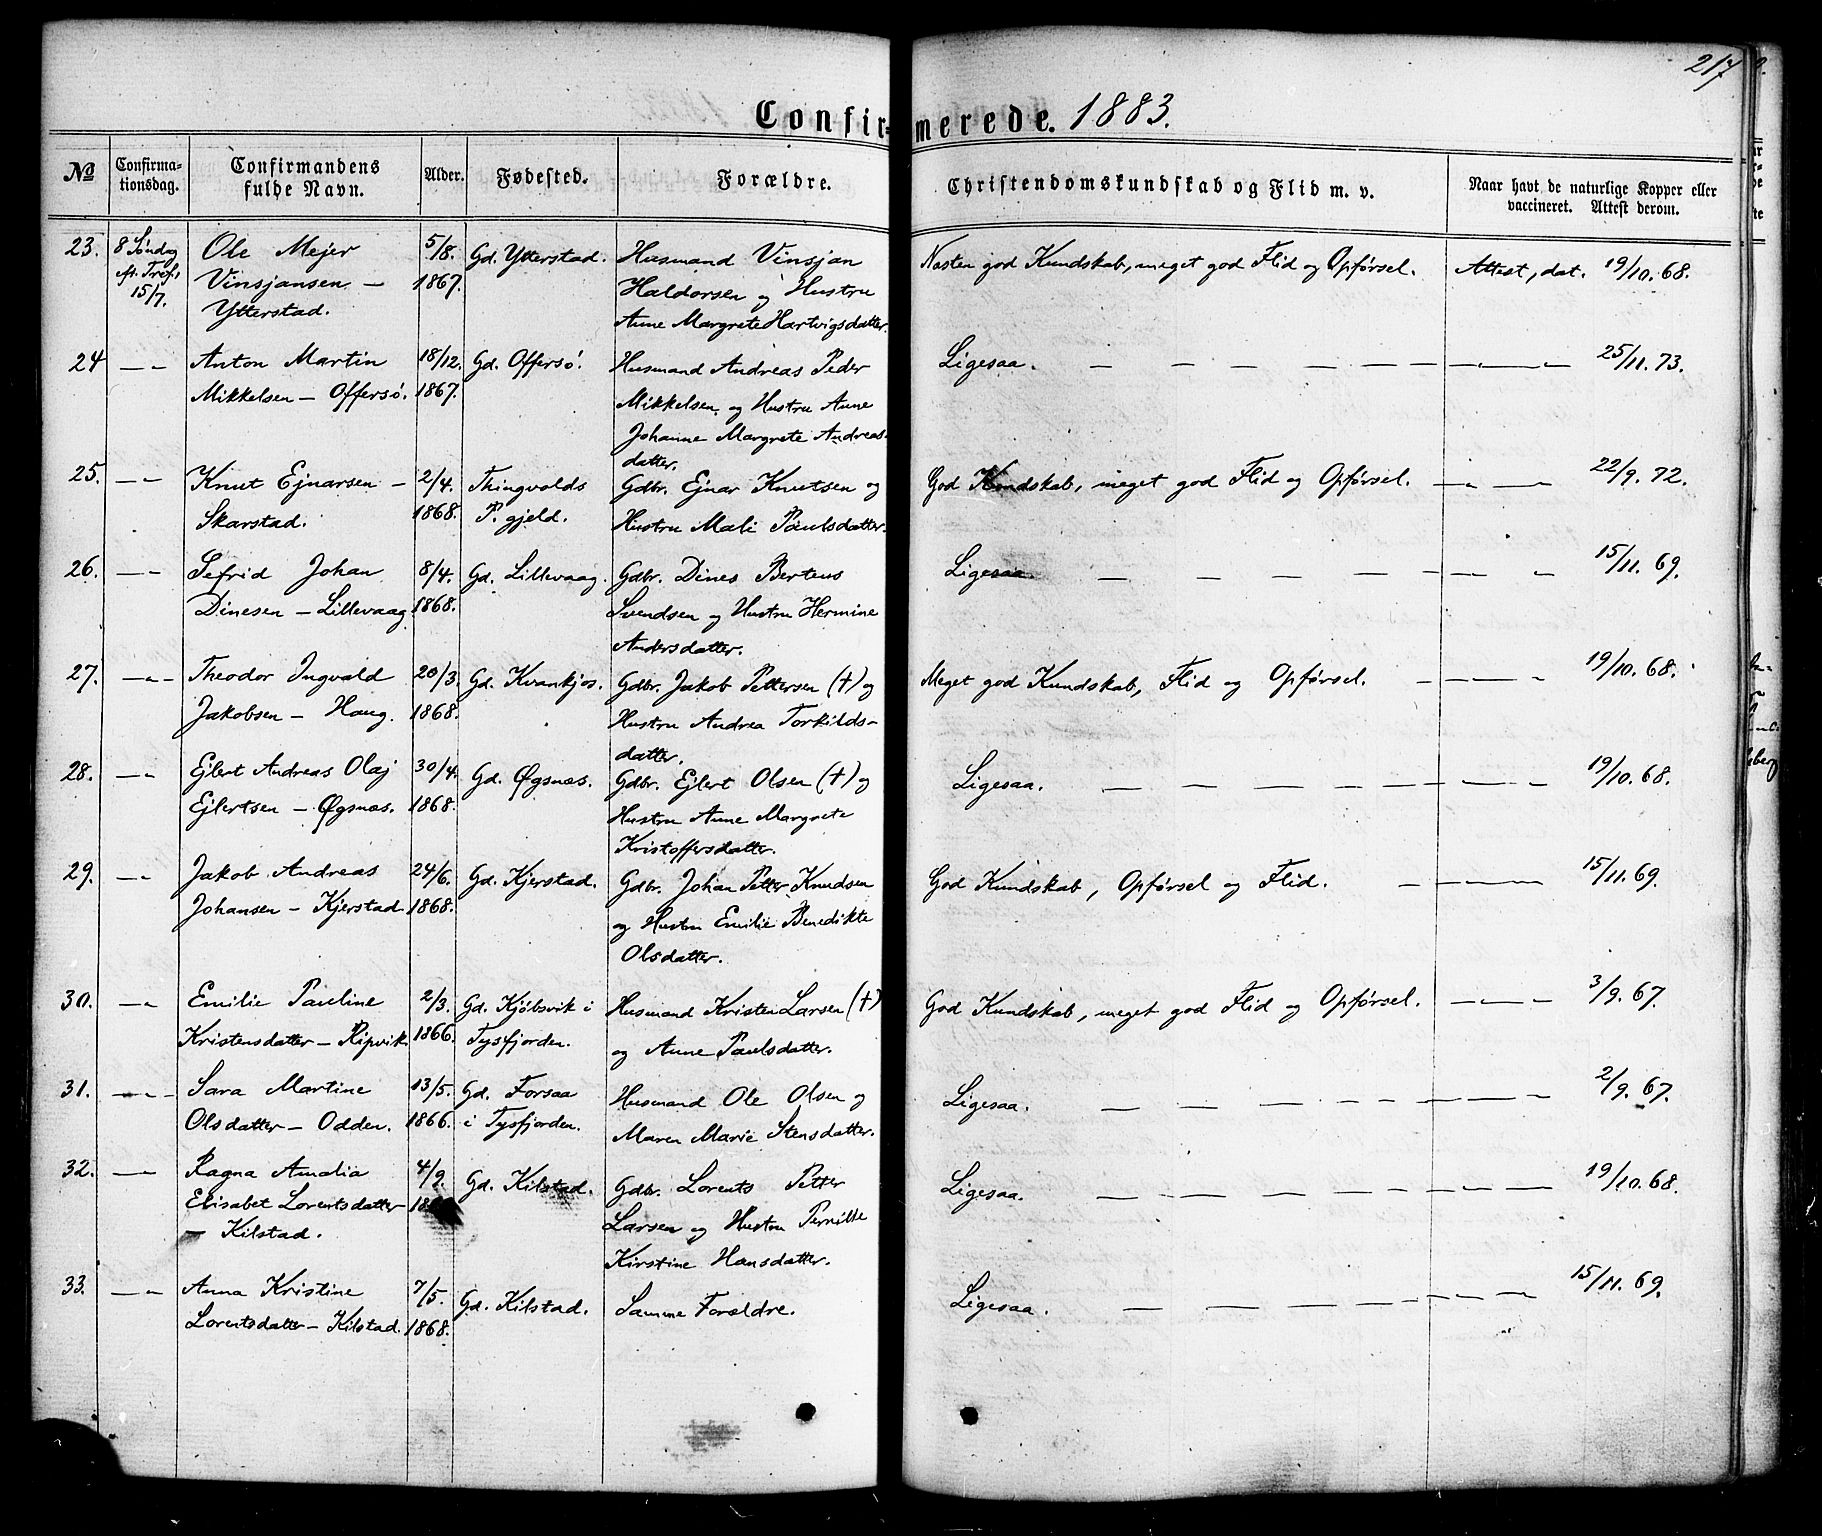 217
Confirmerede. 1883.
No
Confirma-
tionsdag.
Confirmandens
fulde Navn.
Alder.
Fødested.
Forældre.
Christendomskundskab og Flid m. v.
Naar havt de naturlige Kopper eller
vaccineret. Attest derom.
23. 8 Søndag Ole Mejer 5/8. Gd. Ytterstad. Husmand Vinsjan Næsten god Kundskab, meget god Flid og Opførsel. Attest, dat. 19/10. 68.
eft. Tref. Vinsjansen — 1867. Haldorsen og Hustru
15/7. Ytterstad. Anne Margrete Hartvigsdatter.
24 — „ Anton Martin 18/12. Gd. Offersø. Husmand Andreas Peder Ligesaa. — — — — — — — „ — 25/11. 73.
Mikkelsen — Offersø. 1867. Mikkelsen og Hustru Anne
Johanne Margrete Andreas-
datter.
25. — „ Knut Ejnarsen — 2/4. Thingvolds Gdbr. Ejnar Knutsen og God Kundskab, meget god Flid og Opførsel. — „ — „ 22/9. 72.
Skarstad. 1868. P. gjeld. Hustru Mali Paulsdatter.
26. — „ Sefrid Johan 8/4. Gd. Lillevaag. Gdbr. Dines Berteus Ligesaa. — — — — — — „ — „ 15/11. 69.
Dinesen — Lillevaag 1868. Svendsen og Hustru Hermine
Andersdatter.
27. — „ Theodor Ingvald 20/3. Gd. Kvankjos. Gdbr. Jakob Pettersen (†) og Meget god Kundskab, Flid og Opførsel. — — „ — „ 19/10. 68.
Jakobsen — Haug. 1868. Hustru Andrea Torkilds-
datter.
28. — „ Ejlert Andreas Olaj 30/4. Gd. Øgsnæs. Gdbr. Ejlert Olsen (†) og Ligesaa. — — — — — — „ — „ 19/10. 68.
Ejlertsen — Øgsnæs. 1868. Hustru Anne Margrete
Kristoffersdatter.
29. — „ Jakob Andreas 24/6. Gd. Kjerstad. Gdbr. Johan Petter Knudsen God Kundskab, Opførsel og Flid. — — „ — 15/11. 69.
Johansen — Kjerstad 1868. og Hustru Emilie Benedikte
Olsdatter.
30. — „ Emilie Pauline 2/3. Gd. Kjøbsvik i Husmand Kristen Larsen (†) God Kundskab, meget god Flid og Opførsel. — „ — „ — 3/9. 67.
Kristensdatter — Ripvik 1866. Tysfjorden. og Anne Paulsdatter.
31. — „ Sara Martine 13/5. Gd. Forsaa Husmand Ole Olsen og Ligesaa. — — — — — — „ — „ — 2/9. 67.
Olsdatter — Odden. 1866. i Tysfjorden. Maren Marie Stensdatter.
32. — „ Ragna Amalia 4/9. Gd. Kilstad. Gdbr. Lorents Petter Ligesaa. — — — — — — „ — „ — 19/10. 68.
Elisabet Lorentsdatter Larsen og Hustru Pernille
— Kilstad. Kirstine Hansdatter.
33. — „ Anna Kristine 7/5. Gd. Kilstad. Samme Forældre. Ligesaa. — — — — — — „ — „ — 15/11. 69.
Lorentsdatter — Kilstad. 1868.